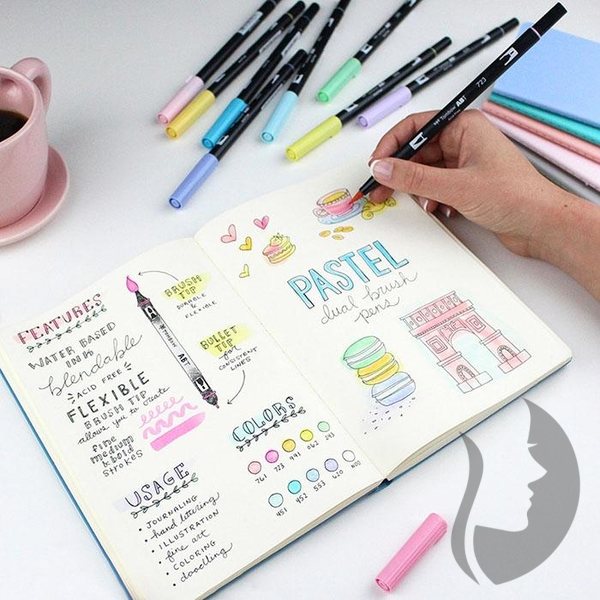 FEATURES
WATER BASED
INK
blendable
ACID FREE
FLEXIBLE
BRUSH TIP
allows you to create
fine
medium
& bold
strokes
BRUSH
TIP
DURABLE
&
FLEXIBLE
BULLET
TIP
for
CONSISTENT
LINES
USAGE
• JOURNALING
• hand lettering
• ILLUSTRATION
• fine art
• COLORING
• doodling
COLORS
761 723 491 062 243
451 452 553 620 N00
PASTEL
dual brush
pens
Tombow ABT 723